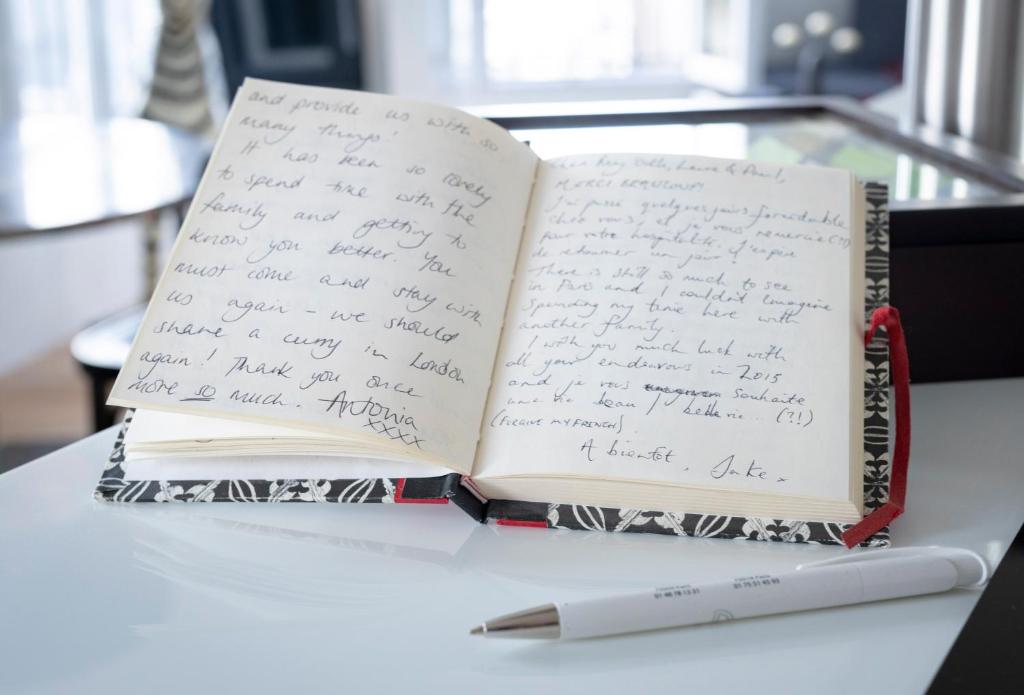 and provide us with so
many things!
It has been so lovely
to spend time with the
family and getting to
know you better. You
must come and stay with
us again - we should
share a curry in London
again! Thank you once
more so much. Antonia
xxxx
Laura & Paul,
MERCI BEAUCOUP!
J'ai passé quelques jours formidable
chez vous, et je vous remercie (?!)
pour votre hospitalité. J'espère
de retourner un jour!
There is still so much to see
in Paris and I couldn't imagine
spending my time here with
another family.
I wish you much luck with
all your endeavours in 2015
and je vous souhaite
une vie beau / belle vie... (?!)
(FORGIVE MY FRENCH).
A bientot, Jake x
01 48 78 13 31
01 75 51 45 93